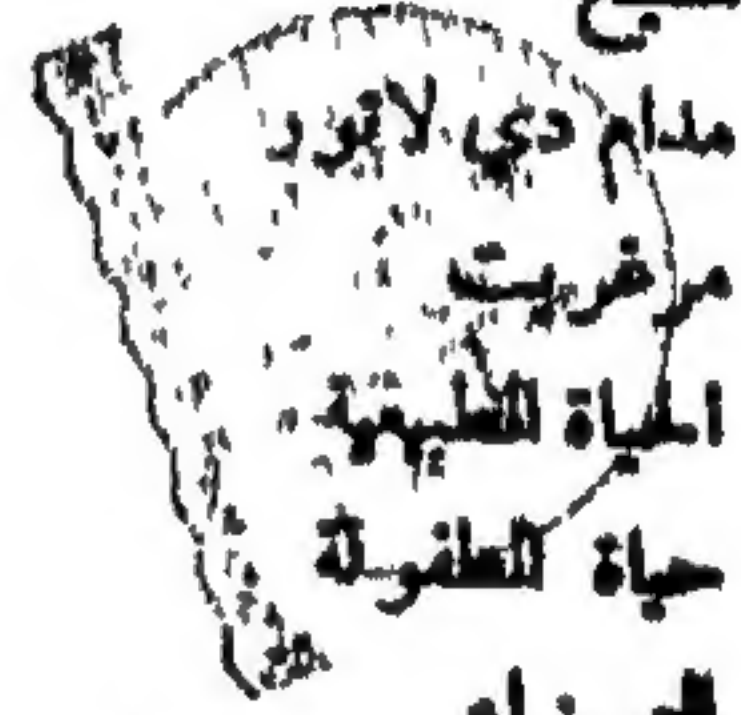 مدام دي لاتور
مرغريت
الحياة الطبيعية
حياة الطفولة